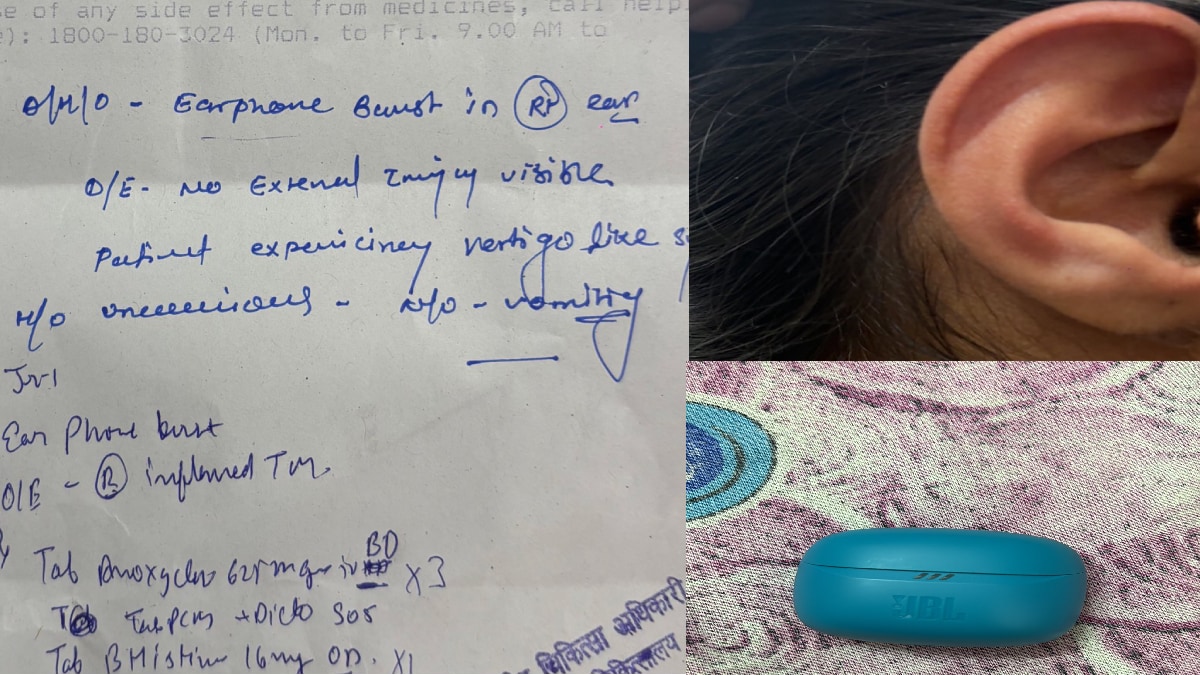 se of any side effect from medicines, call help
e): 1800-180-3024 (Mon. to Fri. 9.00 AM to
O/H/O - Earphone Burst in (Rt) ear
O/E - No External Injury visible
Patient expericiney vertigo like
H/O - H/O - vomiting
Ear Phone burst
O/E - (R) inflamed TM
Tab 625 mg BD x 3
Tab PCM + Diclo SOS
Tab BHistine 16mg OD. x1
चिकित्सा अधिकारी
JBL